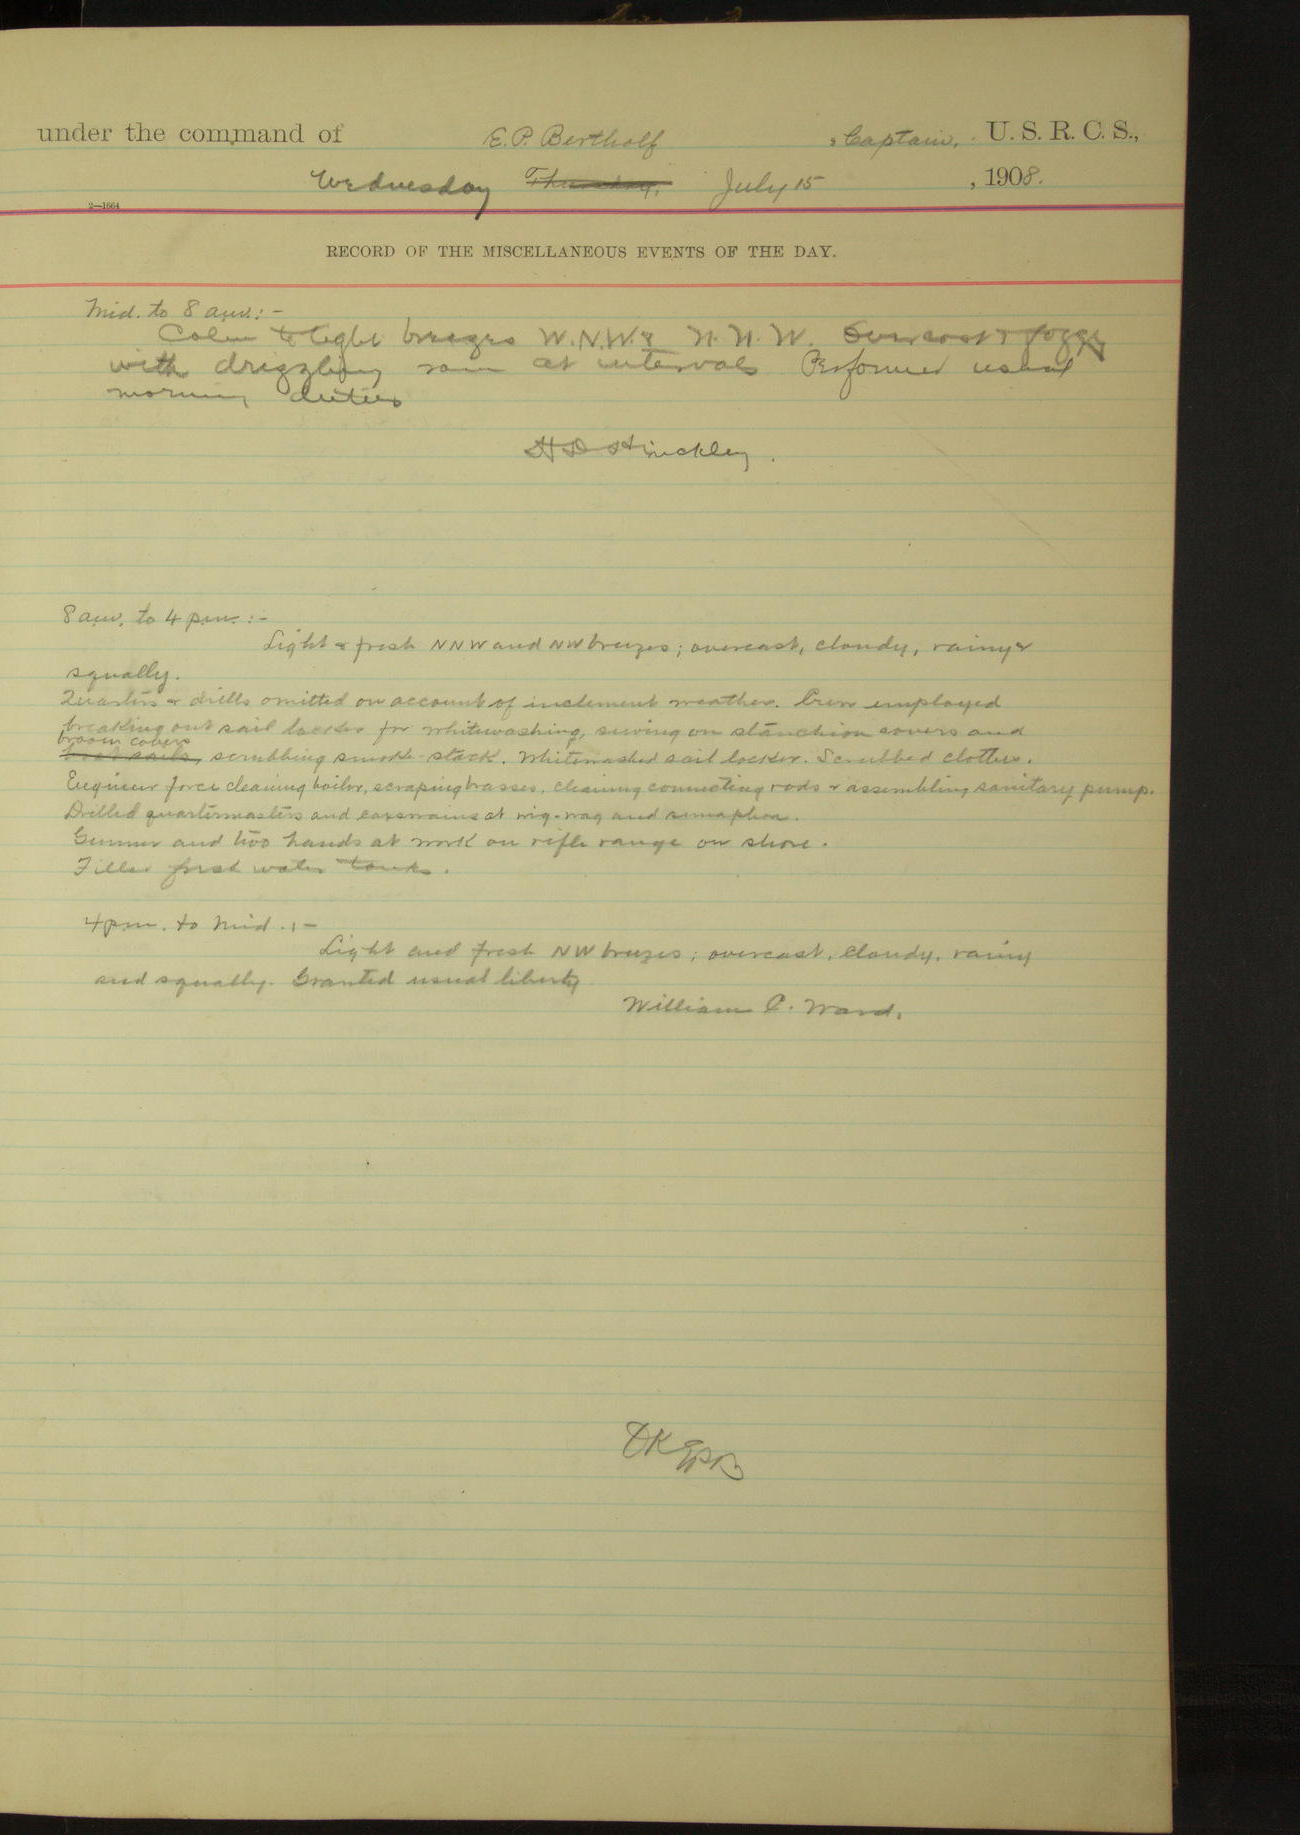 under the command of E. P. Bertholf, Captain, U. S. R. C. S.,
Wednesday Thursday, July 15, 1908.
2—1664
RECORD OF THE MISCELLANEOUS EVENTS OF THE DAY.
Mid. to 8 a.m.:-
Calm to light breezes W.N.W. & N.N.W. Overcast & foggy
with drizzling rain at intervals Performed usual
morning duties
H D Hinckley.
8 a.m. to 4 p.m.:-
Light & fresh NNW and NW breezes; overcast, cloudy, rainy &
squally.
Quarters & drills omitted on account of inclement weather. Crew employed
breaking out sail locker for whitewashing, sewing on stanchion covers and
broom covers
boat sails, scrubbing smoke-stack. Whitewashed sail locker. Scrubbed clothes.
Engineer force cleaning boiler, scraping brasses, cleaning connecting rods & assembling sanitary pump.
Drilled quartermasters and coxswains at wig-wag and semaphore.
Gunner and two hands at work on rifle range on shore.
Filled fresh water tanks.
4 p.m. to Mid.:-
Light and fresh NW breezes; overcast, cloudy, rainy
and squally. Granted usual liberty
William C. Ward.
OK
EPB